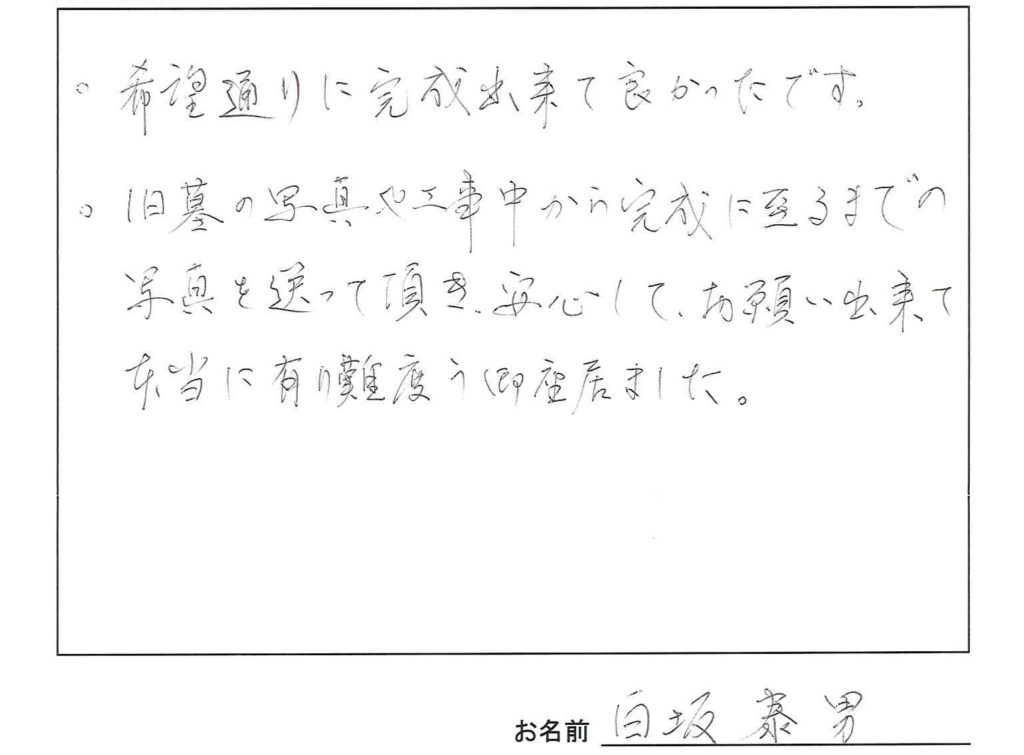 。希望通りに完成出来て良かったです。
。旧墓の写真や工事中から完成に至るまでの
写真を送って頂き、安心して、お願い出来て
本当に有り難度う御座居ました。
お名前 白坂 泰男